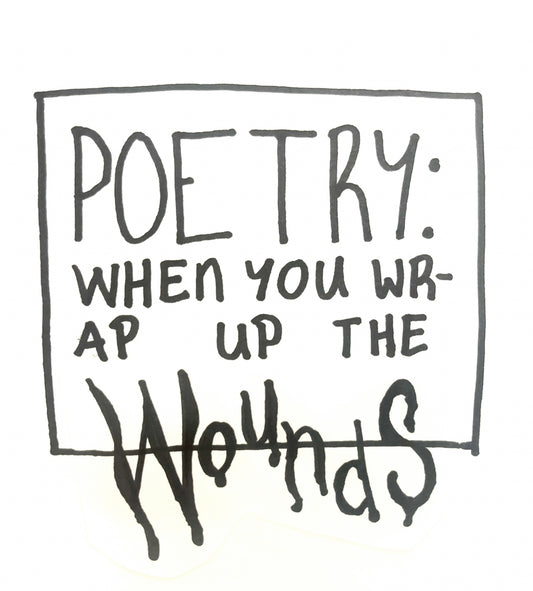 POETRY:
WHEN YOU WR-
AP UP THE
WoundS